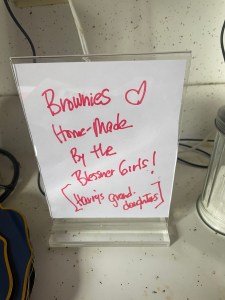 Brownies ♡
Home-Made
By the
Blessner Girls!
[Harry's grand-
daughters]